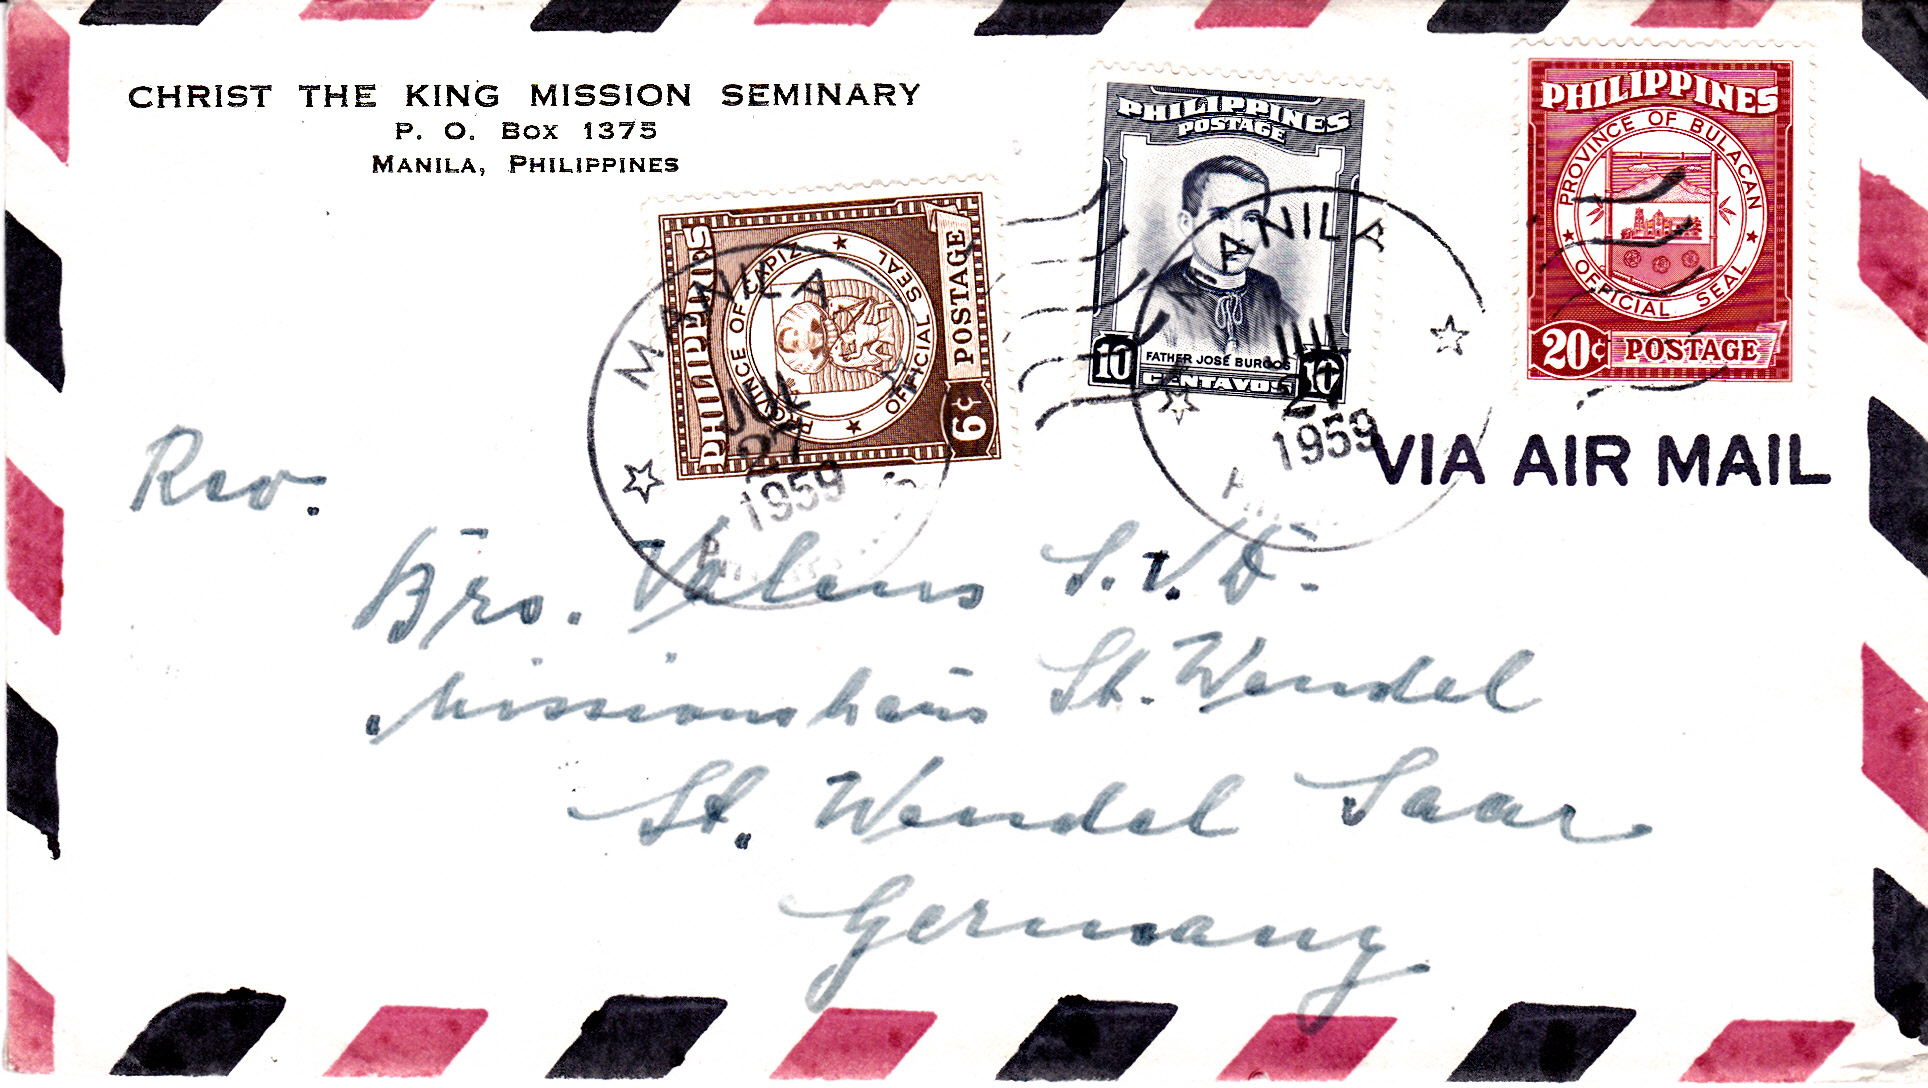 CHRIST THE KING MISSION SEMINARY
P. O. BOX 1375
MANILA, PHILIPPINES
PHILIPPINES
PROVINCE OF CAPIZ
OFFICIAL SEAL
POSTAGE
6¢
MANILA
JUL
27
1959
PHILIPPINES
POSTAGE
FATHER JOSE BURGOS
10 CENTAVOS 10
MANILA
JUL
27
1959
PHILIPPINES
PROVINCE OF BULACAN
OFFICIAL SEAL
20¢ POSTAGE
VIA AIR MAIL
Rev.
Bro. Valens S.V.D.
Missionshaus St. Wendel
St. Wendel Saar
Germany